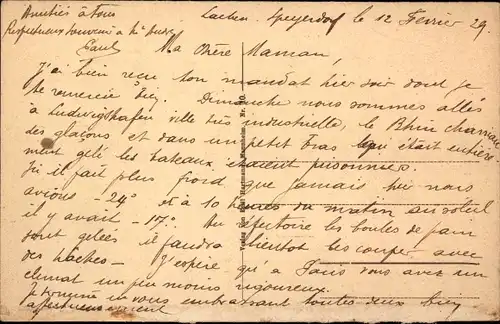 Amitiés à tous
Respectueux souvenir à
Paul
Lachen-Speyerdorf le 12 Février 29.
Ma Chère Maman,
J'ai bien reçu ton mandat hier soir dont je
te remercie bien. Dimanche nous sommes allés
à Ludwigshafen ville très industrielle, le Rhin charriait
des glaçons et dans un petit bras qui était entière
ment gelé les bateaux étaient prisonniers.
Ici il fait plus froid que jamais hier nous
avions -24° et à 10 heures du matin au soleil
il y avait -17°. Au réfectoire les boules de pain
sont gelées il faudra bientôt les couper avec
des haches - J'espère qu'à Paris vous avez un
climat un peu moins rigoureux.
Je termine en vous embrassant toutes deux bien
affectueusement
Verlag von Hartmann, Mannheim. Nr.